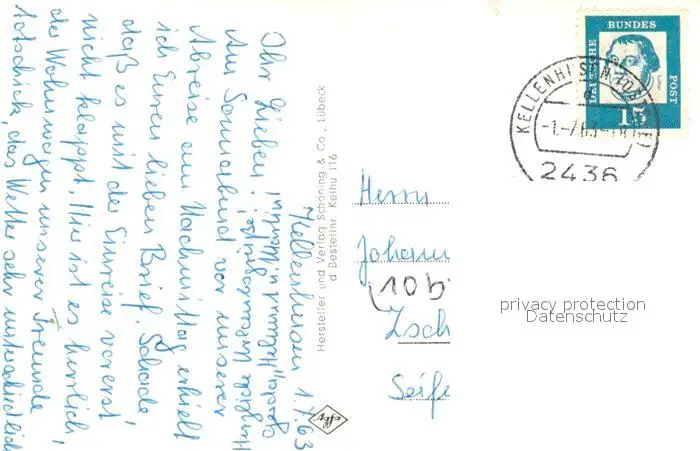 Kellenhusen 1.7.63
Ihr Lieben!
Am Sonnabend vor unserer
Abreise am Nachmittag erhielt
ich Euren lieben Brief. Schade,
daß es mit der Einreise vorerst
nicht klappt. Hier ist es herrlich,
der Wohnwagen unserer Freunde
totschick, das Wetter sehr unterschiedlich
Helmut u. Martin
Hersteller und Verlag Schöning & Co., Lübeck
d Bestellnr. Kelhu 116
agfa
DEUTSCHE
BUNDES
POST
Luther
15
KELLENHUSEN (OSTSEE)
-1.-7.63.-18
2436
Herrn
Johann
(10b
Zsch
Seife
privacy protection
Datenschutz